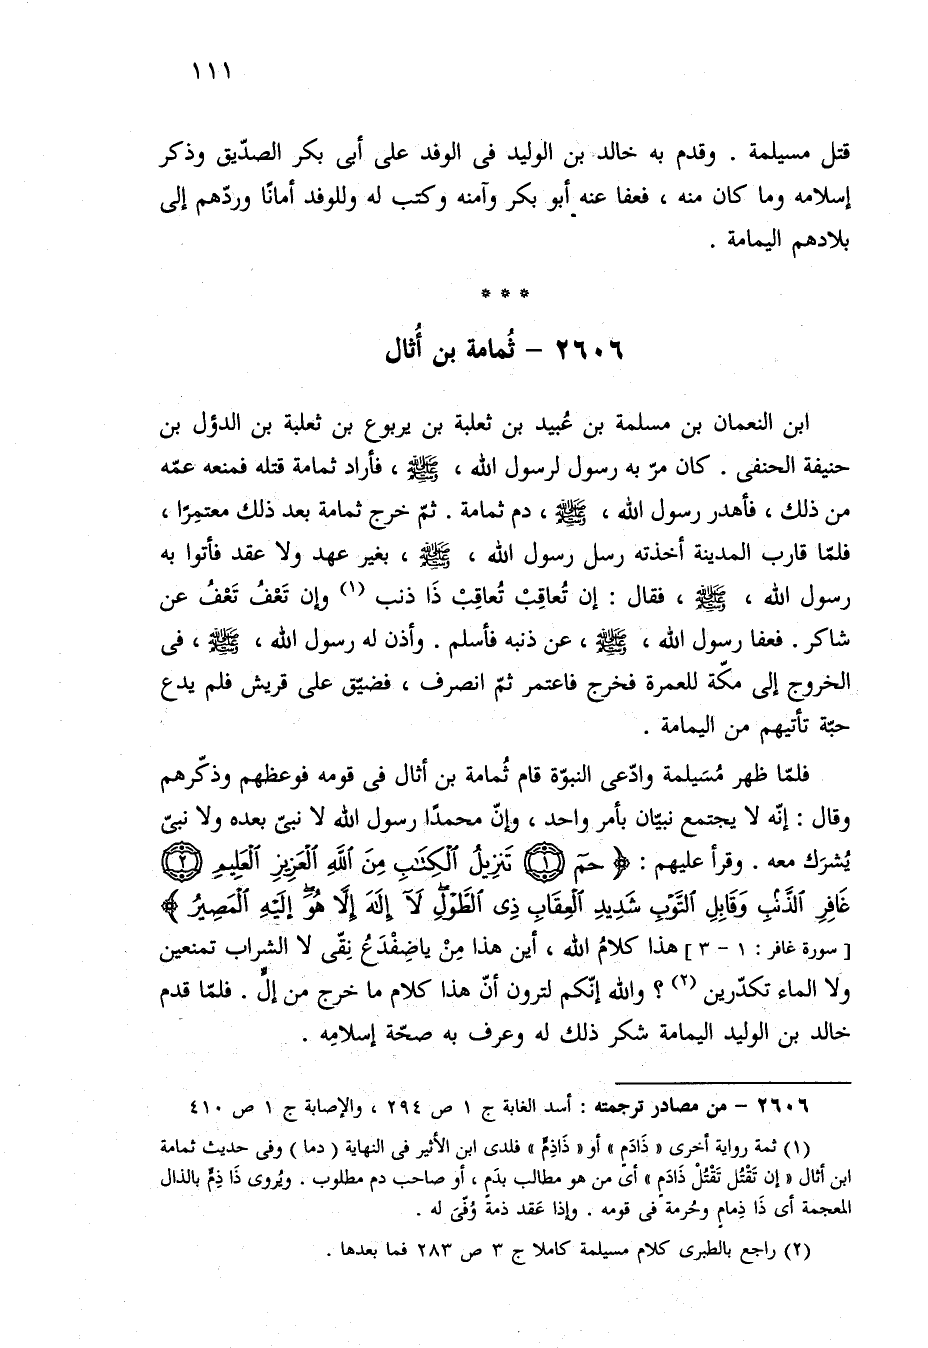 ١١١
قتل مسيلمة . وقدم به خالد بن الوليد فى الوفد على أبى بكر الصدّيق وذكر
إسلامه وما كان منه ، فعفا عنه أبو بكر وآمنه وكتب له وللوفد أمانًا وردّهم إلى
بلادهم اليمامة .
* * *
٢٦٠٦ – ثُمامة بن أُثال
ابن النعمان بن مسلمة بن عُبيد بن ثعلبة بن يربوع بن ثعلبة بن الدؤل بن
حنيفة الحنفى . كان مرّ به رسول لرسول الله ، ﷺ ، فأراد ثمامة قتله فمنعه عمّه
من ذلك ، فأهدر رسول الله ، ﷺ ، دم ثمامة . ثمّ خرج ثمامة بعد ذلك معتمِرًا ،
فلمّا قارب المدينة أخذته رسل رسول الله ، ﷺ ، بغير عهد ولا عقد فأتوا به
رسول الله ، ﷺ ، فقال : إن تُعاقِبْ تُعاقِبْ ذَا ذنب (١) وإن تَعْفُ تَعْفُ عن
شاكر . فعفا رسول الله ، ﷺ ، عن ذنبه فأسلم . وأذن له رسول الله ، ﷺ ، فى
الخروج إلى مكّة للعمرة فخرج فاعتمر ثمّ انصرف ، فضيّق على قريش فلم يدع
حبّة تأتيهم من اليمامة .
فلمّا ظهر مُسَيلمة وادّعى النبوّة قام ثُمامة بن أثال فى قومه فوعظهم وذكّرهم
وقال : إنّه لا يجتمع نبيّان بأمر واحد ، وإنّ محمدًا رسول الله لا نبىّ بعده ولا نبىّ
يُشرَك معه . وقرأ عليهم : ﴿ حمٓ ۝١ تَنزِيلُ ٱلْكِتَٰبِ مِنَ ٱللَّهِ ٱلْعَزِيزِ ٱلْعَلِيمِ ۝٢
غَافِرِ ٱلذَّنۢبِ وَقَابِلِ ٱلتَّوْبِ شَدِيدِ ٱلْعِقَابِ ذِى ٱلطَّوْلِۖ لَآ إِلَٰهَ إِلَّا هُوَۖ إِلَيْهِ ٱلْمَصِيرُ ﴾
[ سورة غافر : ١ – ٣ ] هذا كلامُ الله ، أين هذا مِنْ ياضِفْدَعُ نِقّى لا الشراب تمنعين
ولا الماء تكدّرين (٢) ؟ والله إنّكم لترون أنّ هذا كلام ما خرج من إلٍّ . فلمّا قدم
خالد بن الوليد اليمامة شكر ذلك له وعرف به صحّة إسلامِه .
٢٦٠٦ – من مصادر ترجمته : أسد الغابة ج ١ ص ٢٩٤ ، والإصابة ج ١ ص ٤١٠
(١) ثمة رواية أخرى « ذَادَمٍ » أو « ذَاذِمٍّ » فلدى ابن الأثير فى النهاية ( دما ) وفى حديث ثمامة
ابن أثال « إن تَقْتُل تَقْتُلْ ذَادَمٍ » أى من هو مطالب بدَمٍ ، أو صاحب دم مطلوب . ويُروى ذَا ذِمٍّ بالذال
المعجمة أى ذَا ذِمامٍ وحُرمة فى قومه . وإذا عَقد ذمةً وُفّىَ له .
(٢) راجع بالطبرى كلام مسيلمة كاملا ج ٣ ص ٢٨٣ فما بعدها .